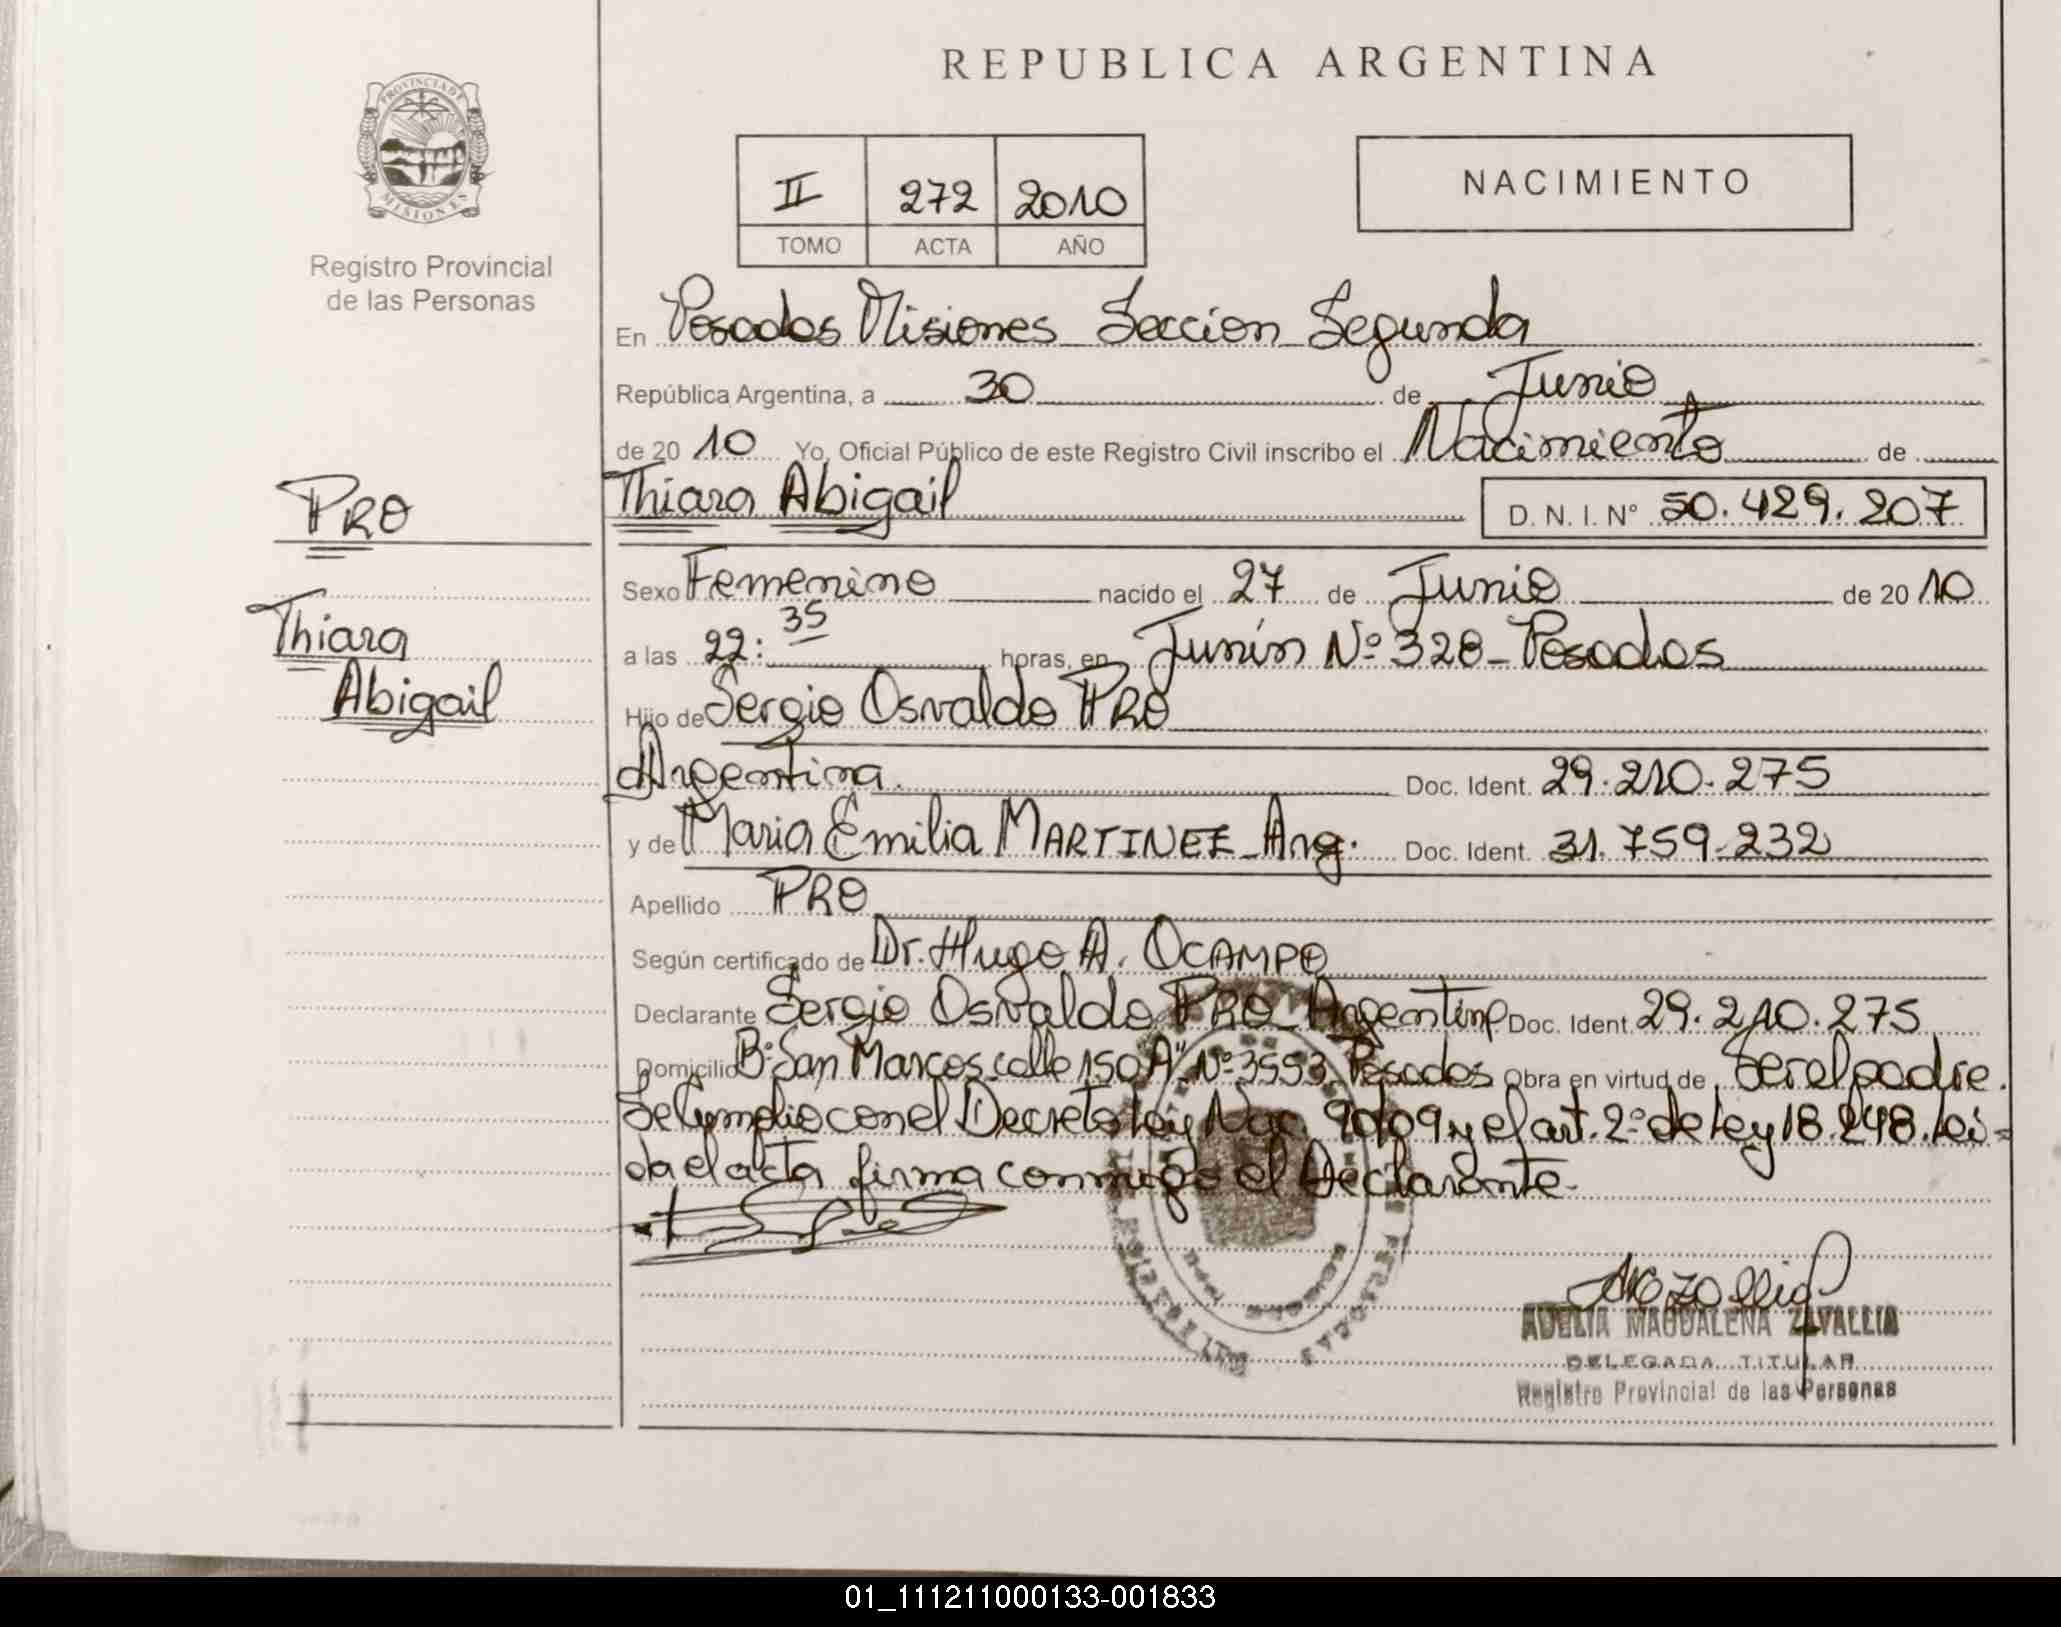 PROVINCIA DE
MISIONES
Registro Provincial
de las Personas
REPUBLICA ARGENTINA
II 272 2010
TOMO ACTA AÑO
NACIMIENTO
En Posadas Misiones Seccion Segunda
República Argentina, a 30 de Junio
de 20 10 Yo, Oficial Público de este Registro Civil inscribo el Nacimiento de
Thiara Abigail D. N. I. N° 50.429.207
PRO
Thiara
Abigail
Sexo Femenino nacido el 27 de Junio de 20 10
a las 22:35 horas, en Junín Nº 328 - Posadas
Hijo de Sergio Osvaldo PRO
Argentina. Doc. Ident. 29.210.275
y de Maria Emilia MARTINEZ - Arg. Doc. Ident. 31.759.232
Apellido PRO
Según certificado de Dr. Hugo A. OCAMPO
Declarante Sergio Osvaldo PRO - Argentino Doc. Ident. 29.210.275
Domicilio Bº San Marcos calle 150"A" Nº 3553 Posadas Obra en virtud de Ser el padre.
Se Cumplio con el Decreto Ley Nac. 9009 y el art. 2º de Ley 18.248. Lei=
da el acta firma conmigo el Declarante.
ADELIA MAGDALENA ZAVALLIA
DELEGADA TITULAR
Registro Provincial de las Personas
01_111211000133-001833